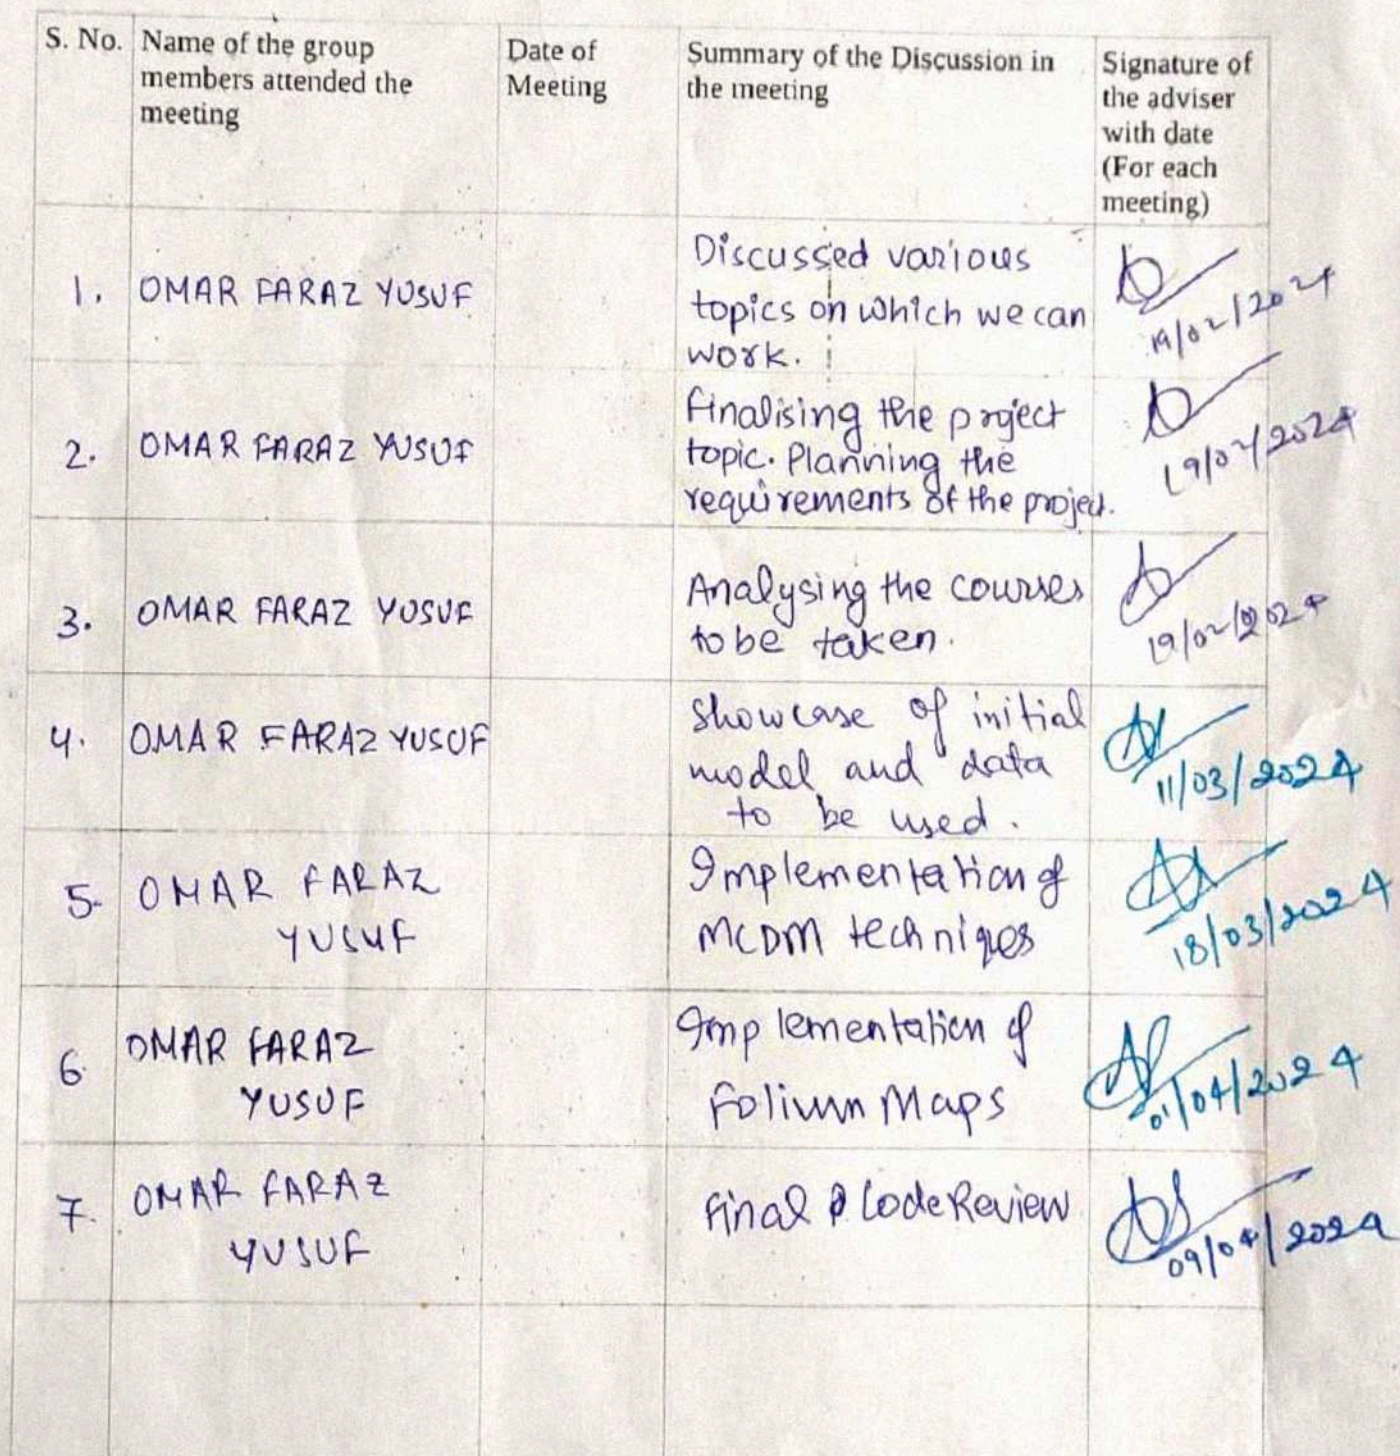 S. No.
Name of the group
members attended the
meeting
Date of
Meeting
Summary of the Discussion in
the meeting
Signature of
the adviser
with date
(For each
meeting)
1.
OMAR FARAZ YUSUF
Discussed various
topics on which we can
work.
19/02/2024
2.
OMAR FARAZ YUSUF
Finalising the project
topic. Planning the
requirements of the project.
19/02/2024
3.
OMAR FARAZ YUSUF
Analysing the courses
to be taken.
19/02/2024
4.
OMAR FARAZ YUSUF
Showcase of initial
model and data
to be used.
11/03/2024
5.
OMAR FARAZ
YUSUF
Implementation of
MCDM techniqes
18/03/2024
6
OMAR FARAZ
YUSUF
Implementation of
Folium Maps
01/04/2024
7.
OMAR FARAZ
YUSUF
Final Code Review
09/04/2024